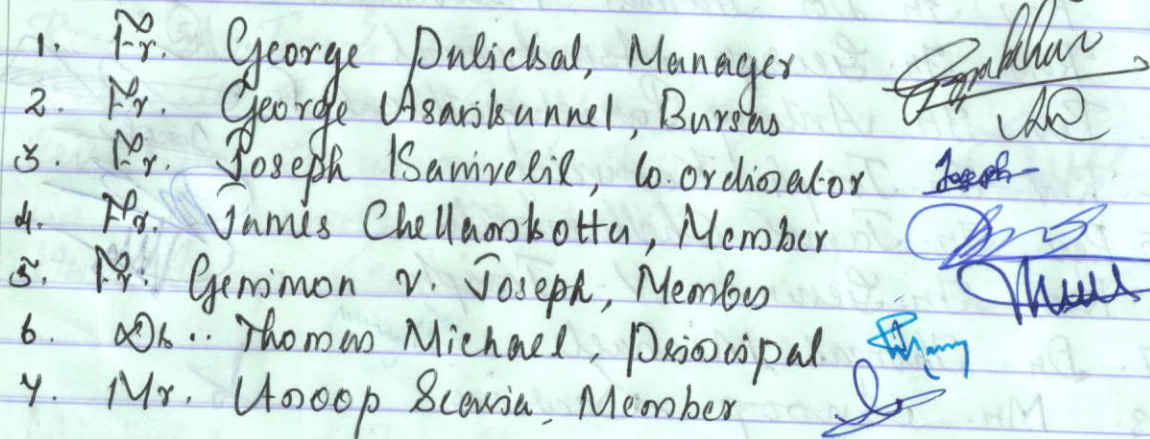 1. Fr. George Pulickal, Manager
2. Fr. George Asarikunnel, Bursar
3. Fr. Joseph Kanivelil, Co.ordinator Joseph
4. Fr. James Chellamkottu, Member
5. Fr. Genimon V. Joseph, Member
6. Dr.. Thomas Michael, Principal
7. Mr. Anoop Scaria, Member